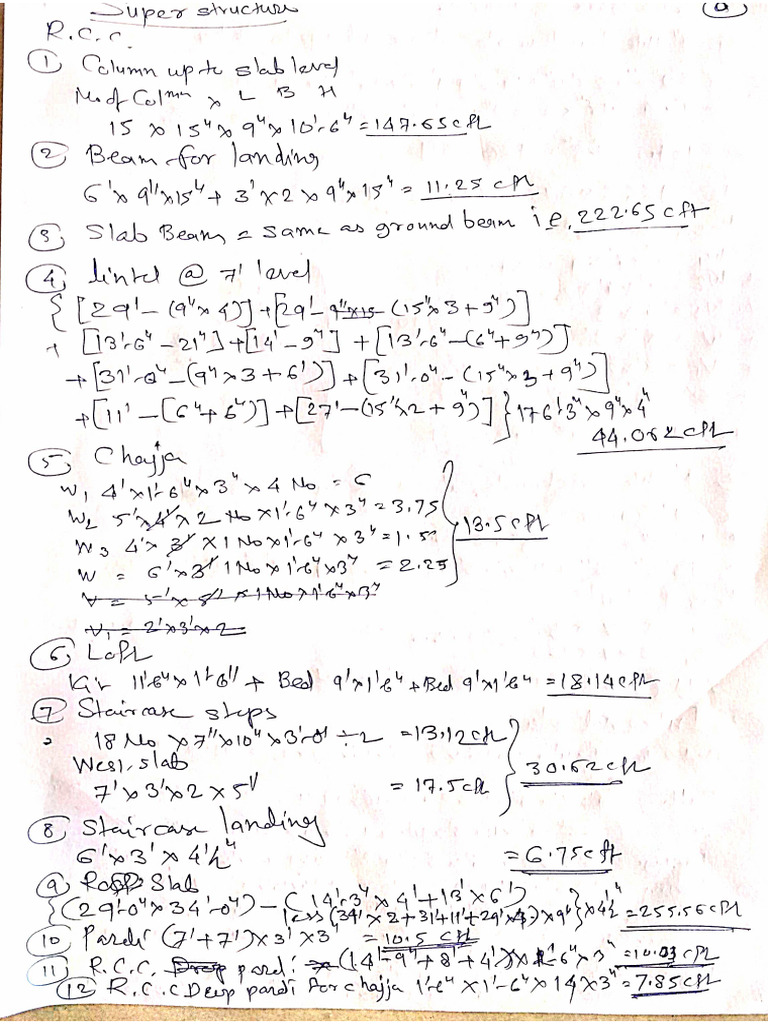 Super structure
R.C.C.
① Column up to slab level
No. of Column x L B H
15 x 15" x 9" x 10'-6" = 147.65 cft
② Beam for landing
6' x 9" x 15" + 3' x 2 x 9" x 15" = 11.25 cft
③ Slab Beam = same as ground beam i.e. 222.65 cft
④ lintel @ 7' level
{ [29' - (9" x 4)] + [29' - 9" x 15 - (15" x 3 + 9")]
+ [13'-6" - 21"] + [14' - 9"] + [13'-6" - (6" + 9")]
+ [31'-0" - (9" x 3 + 6')] + [31'-0" - (15" x 3 + 9")]
+ [11' - [6" + 6")] + [27' - (15" x 2 + 9")] } 176'3" x 9" x 4"
44.062 cft
⑤ Chajja
W1 4' x 1'-6" x 3" x 4 No = 6
W2 5' x 4' x 2 No x 1'-6" x 3" = 3.75
W3 4' x 3' x 1 No x 1'-6" x 3" = 1.5
W = 6' x 3' 1 No x 1'-6" x 3" = 2.25
13.5 cft
V = 5' x 5' x 1 No x 1'-6" x 3"
V1 = 2' x 3' x 2
⑥ Loft
Kit 11'6" x 1'-6" + Bed 9' x 1'6" + Bed 9' x 1'6" = 18.14 cft
⑦ Staircase steps
18 No x 7" x 10" x 3'-0" ÷ 2 = 13.12 cft
West slab
7' x 3' x 2 x 5" = 17.5 cft
30.62 cft
⑧ Staircase landing
6' x 3' x 4½" = 6.75 cft
⑨ Slab
{(29'-0" x 34'-0") - (14'-3" x 4' + 13' x 6')
less (34' x 2 + 31 + 11' + 29' x 3) x 9"} x 4½" = 255.56 cft
⑩ Pardi (7' + 7') x 3' x 3" = 10.5 cft
⑪ R.C.C. Drop pardi (14'-9" + 8' + 4') x 1'-6" x 3" = 10.03 cft
⑫ R.C.C Deep pardi for chajja 1'-6" x 1'-6" x 14 x 3" = 7.85 cft